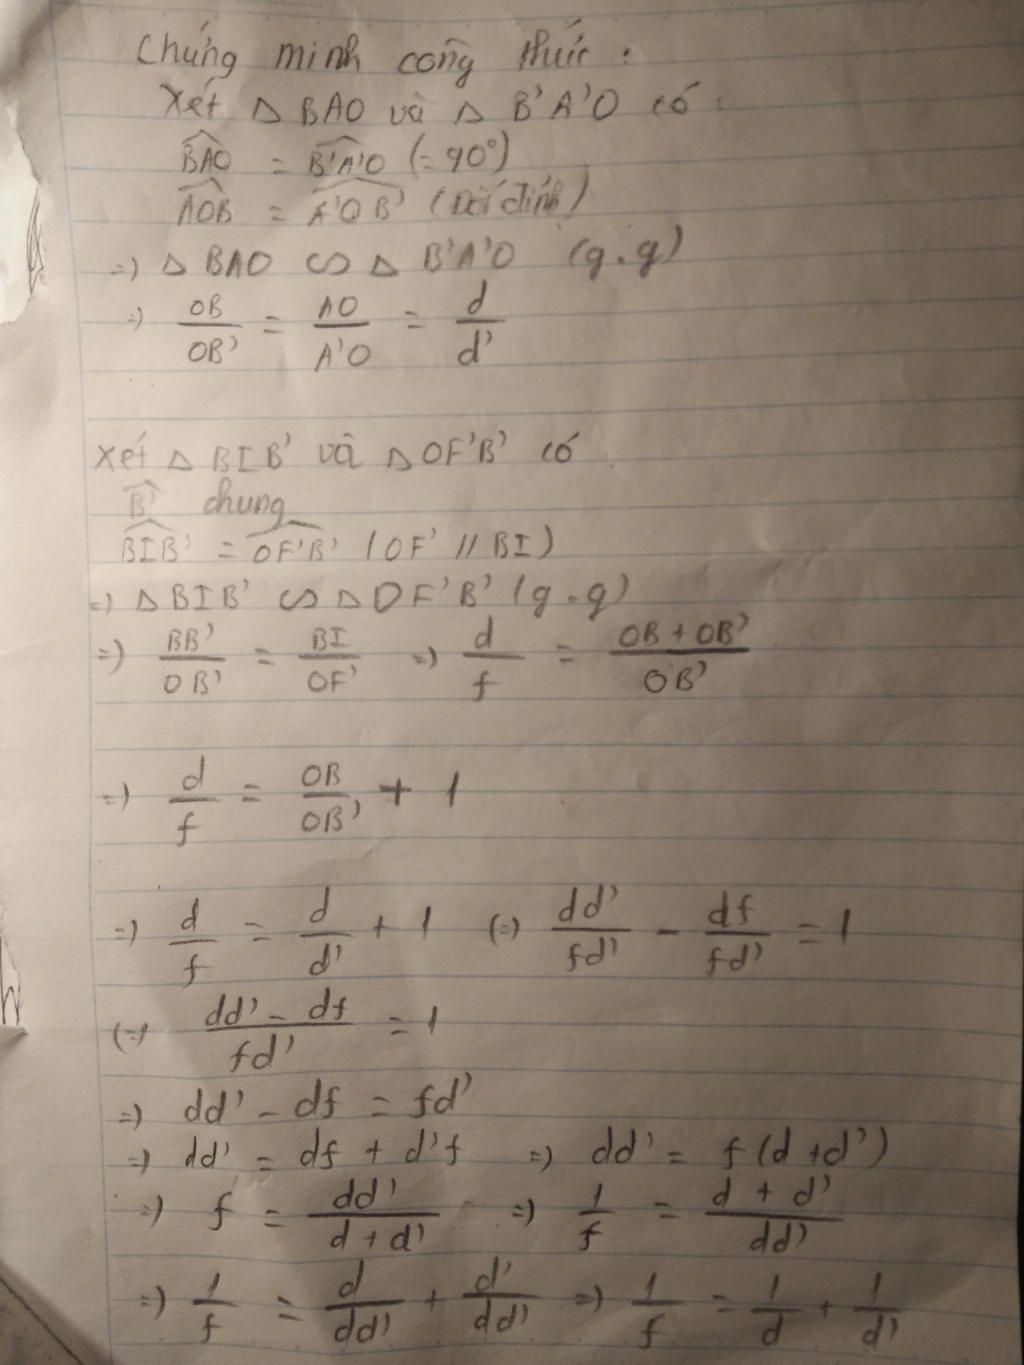 Chứng minh công thức :
Xét △ BAO và △ B'A'O có :
$\widehat{BAO}$ = $\widehat{B'A'O}$ (= 90°)
$\widehat{AOB}$ = $\widehat{A'OB'}$ (Đối đỉnh)
=) △ BAO ∽ △ B'A'O (g.g)
=) $\frac{OB}{OB'}$ = $\frac{AO}{A'O}$ = $\frac{d}{d'}$
Xét △ BIB' và △ OF'B' có
$\widehat{B'}$ chung
$\widehat{BIB'}$ = $\widehat{OF'B'}$ (OF' // BI)
=) △ BIB' ∽ △ OF'B' (g.g)
=) $\frac{BB'}{OB'}$ = $\frac{BI}{OF'}$ =) $\frac{d}{f}$ = $\frac{OB + OB'}{OB'}$
=) $\frac{d}{f}$ = $\frac{OB}{OB'}$ + 1
=) $\frac{d}{f}$ = $\frac{d}{d'}$ + 1 (=) $\frac{dd'}{fd'}$ - $\frac{df}{fd'}$ = 1
(=) $\frac{dd' - df}{fd'}$ = 1
=) dd' - df = fd'
=) dd' = df + d'f =) dd' = f(d + d')
=) f = $\frac{dd'}{d + d'}$ =) $\frac{1}{f}$ = $\frac{d + d'}{dd'}$
=) $\frac{1}{f}$ = $\frac{d}{dd'}$ + $\frac{d'}{dd'}$ =) $\frac{1}{f}$ = $\frac{1}{d}$ + $\frac{1}{d'}$